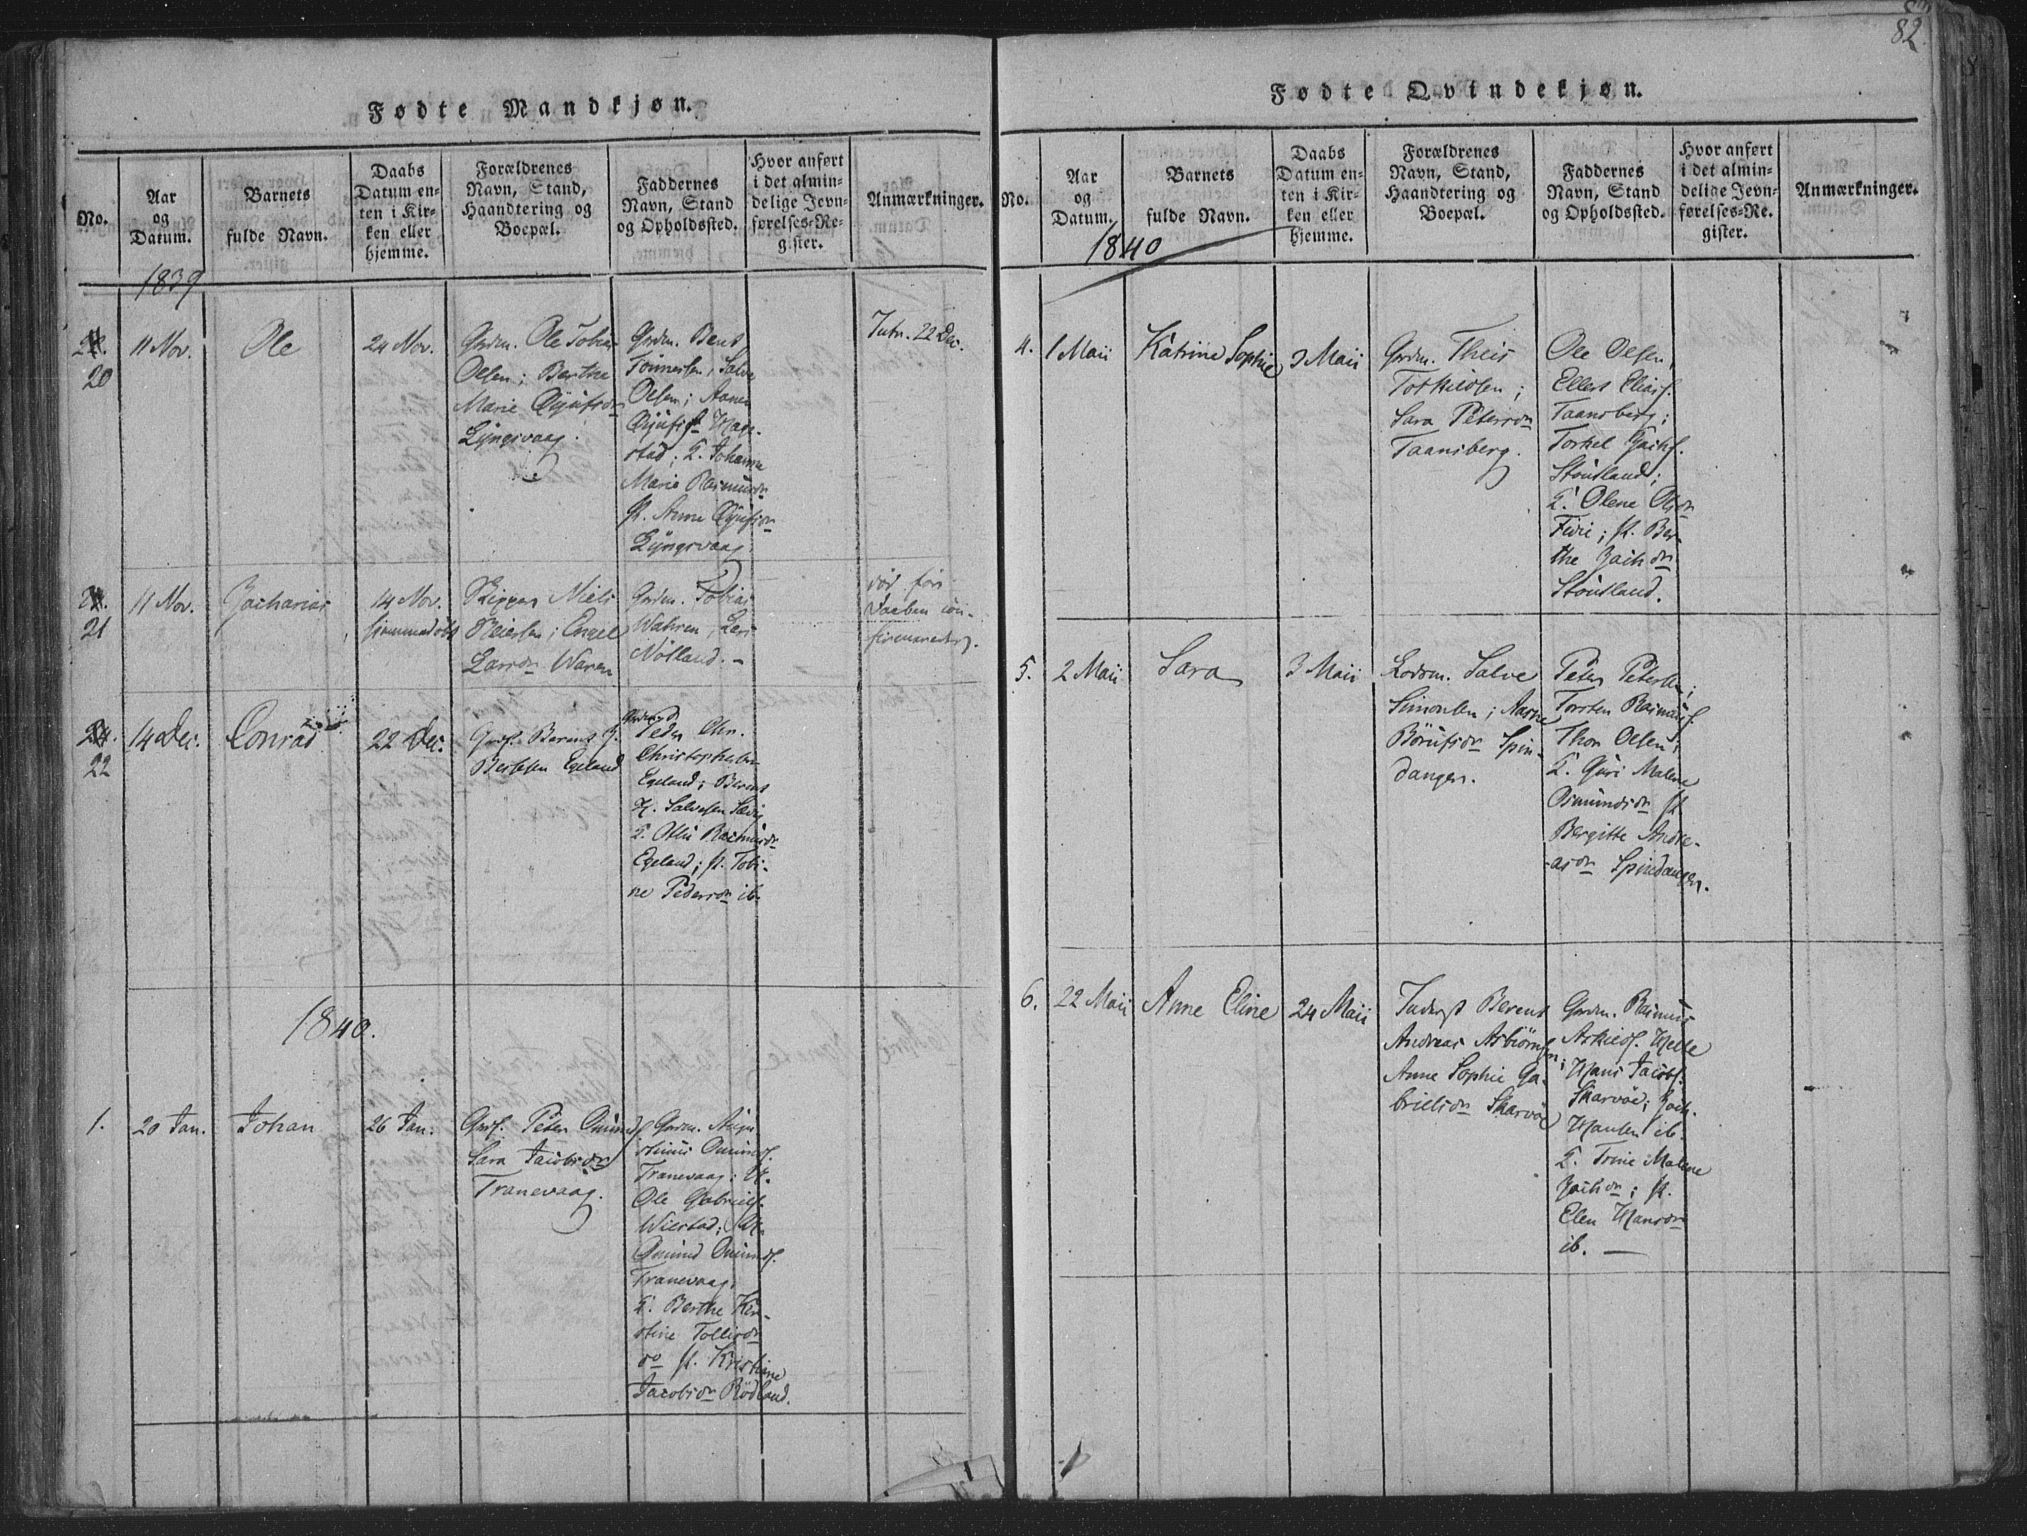 82
Fødte Mandkjøn.
No.
Aar
og
Datum.
Barnets
fulde Navn.
Daabs
Datum en-
ten i Kir-
ken eller
hjemme.
Forældrenes
Navn, Stand,
Haandtering og
Boepæl.
Faddernes
Navn, Stand
og Opholdssted.
Hvor anført
i det almin-
delige Jevn-
førelses-Re-
gister.
Anmærkninger.
1839
20
11 Nov.
Ole
24 Nov.
Grdm. Ole Johan
Olsen; Berthe
Marie
Lyngsvaag.
Grdm. Bent
Tønnessen, Salve
Olsen;
stad; T. Johanne
Marie Rasmusdr
st. Anne
Lyngsvaag.
Intr. 22 Dec.
21
11 Nov.
Zacharias
14 Nov.
hjemmedøbt
Skipper Niels
Reiersen; Engel
Larsdr Waren
Grdm. Tobias
Wahren, Lars
Nølland. -
død før
Daaben con-
firmeredes.
22
14 Dec.
Conrad
22 Dec.
Grdf. Berent J.
Berntsen Egeland
Grdmd.
Peder Chr.
Christophersen
Egeland; Berent
H. Salvesen
T. Rasmusdr
Egeland; st. Tobi-
ne Pedersdr ib.
1840.
1.
20 Jan.
Johan
26 Jan.
Grdf. Peter Omunds
Sara Jacobsdr
Tranevaag.
Grdm. Augu
stinus Omundsf.
Tranevaag;
Ole Gabrielsf.
Wiestad;
Omund Omundsf.
Tranevaag.
T. Berthe Kir-
stine Tollisdr
do st. Kristiane
Jacobsdr Rødland.
Fødte Qvindekjøn.
No.
Aar
og
Datum.
Barnets
fulde Navn.
Daabs
Datum en-
ten i Kir-
ken eller
hjemme.
Forældrenes
Navn, Stand,
Haandtering og
Boepæl.
Faddernes
Navn, Stand
og Opholdssted.
Hvor anført
i det almin-
delige Jevn-
førelses-Re-
gister.
Anmærkninger.
1840
4.
1 Maii
Katrine Sophie
3 Maii
Grdm. Theis
Torkildsen;
Sara Petersdr
Taansberg.
Ole Olsen,
Ellert Eliasf.
Taansberg;
Torkel Zachf.
Støutland;
T. Olene Olsdr
Fidie; st. Ber-
the Zachdr
Støutland.
5.
2 Maii
Sara
3 Maii
Lodsm. Salve
Simonsen; Aasne
Børufsdr Spin-
danger.
Peter Petersen;
Torsten Rasmusf.
Thor Olsen;
T. Guri Malene
Osmundsdr st.
Bergitte Andre-
asdr Spindanger.
6.
22 Maii
Anne Eline
24 Maii
Inderst Berent
Andreas Asbiørnsen;
Anne Sophie Ga-
brielsdr Skarvøe
Grdm. Rasmus
Askildsf. Helle
Hans Jacobsf.
Skarvøe; Zach.
Hansen ib.
T. Trine Malene
Zachdr; st.
Elen Hansdr
ib. —